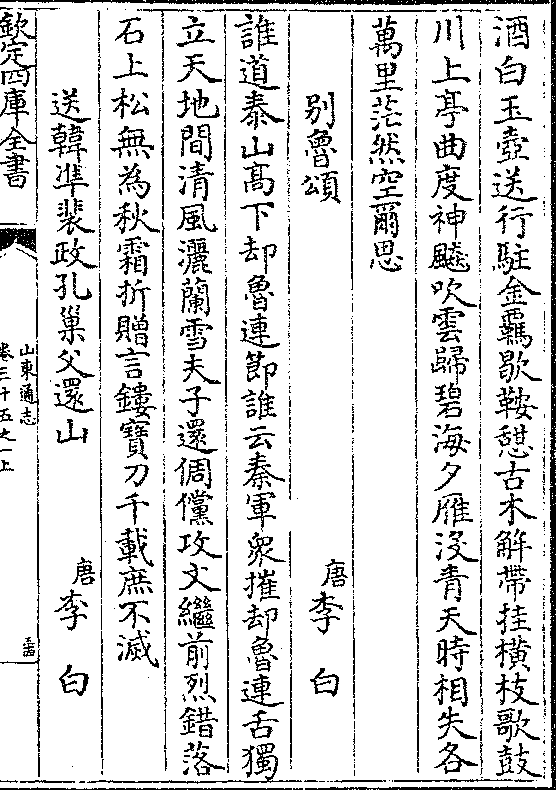 酒白玉壺送行駐金羈歇鞍憇古木解帶挂橫枝歌鼓
川上亭曲度神飈吹雲歸碧海夕雁沒青天時相失各
萬里茫然空爾思
别魯頌 唐李白
誰道泰山髙下却魯連節誰云秦軍衆摧却魯連舌獨
立天地間清風灑蘭雪夫子還倜儻攻文繼前烈錯落
石上松無為秋霜折贈言鏤寶刀千載庶不滅
送韓凖裴政孔巢父還山 唐李白
欽定四庫全書
山東通志
卷三十五之一上